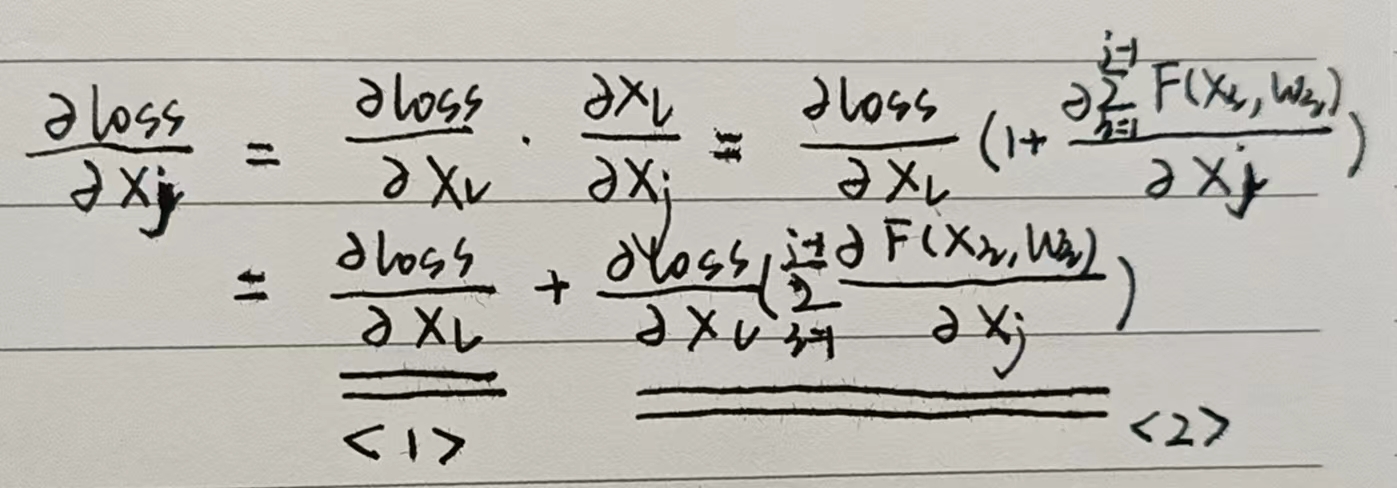 ∂loss/∂Xj = ∂loss/∂XL · ∂XL/∂Xj = ∂loss/∂XL (1 + ∂∑_{n=1}^{j-1} F(Xn, Wn)/∂Xj)
= ∂loss/∂XL + ∂loss/∂XL (∑_{n=1}^{j-1} ∂F(Xn, Wn)/∂Xj)
<1> <2>